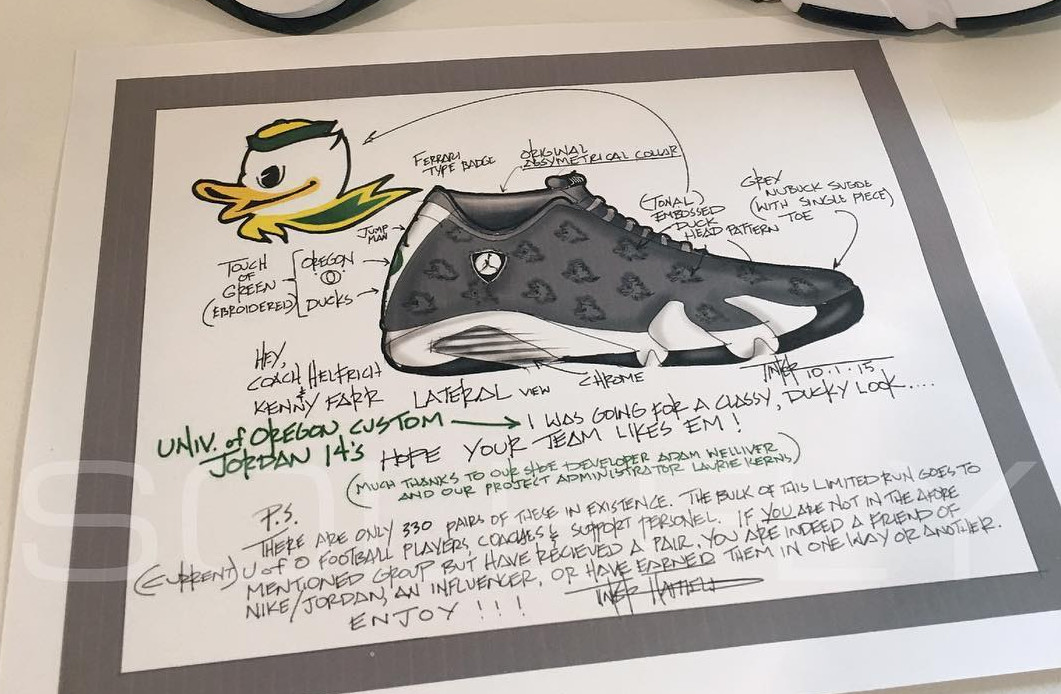 FERRARI
TYPE BADGE
ORIGINAL
ASSYMETRICAL COLLAR
(TONAL)
EMBOSSED
DUCK
HEAD PATTERN
GREY
NUBUCK SUEDE
(WITH SINGLE PIECE)
TOE
JUMP
MAN
TOUCH
OF
GREEN
(EBROIDERED)
OREGON
O
DUCKS
HEY,
COACH HELFRICH
&
KENNY FARR
LATERAL VIEW
CHROME
TINKER 10.1.15
UNIV. of OREGON CUSTOM
JORDAN 14's
I WAS GOING FOR A CLASSY, DUCKY LOOK....
HOPE YOUR TEAM LIKES 'EM!
(MUCH THANKS TO OUR SHOE DEVELOPER ADAM WELLIVER
AND OUR PROJECT ADMINISTRATOR LAURIE KERNS)
P.S.
THERE ARE ONLY 330 PAIRS OF THESE IN EXISTENCE. THE BULK OF THIS LIMITED RUN GOES TO
(CURRENT) U of O FOOTBALL PLAYERS, COACHES & SUPPORT PERSONEL. IF YOU ARE NOT IN THE AFORE
MENTIONED GROUP BUT HAVE RECIEVED A PAIR, YOU ARE INDEED A FRIEND OF
NIKE/JORDAN, AN INFLUENCER, OR HAVE EARNED THEM IN ONE WAY OR ANOTHER.
ENJOY!!!
TINKER HATFIELD